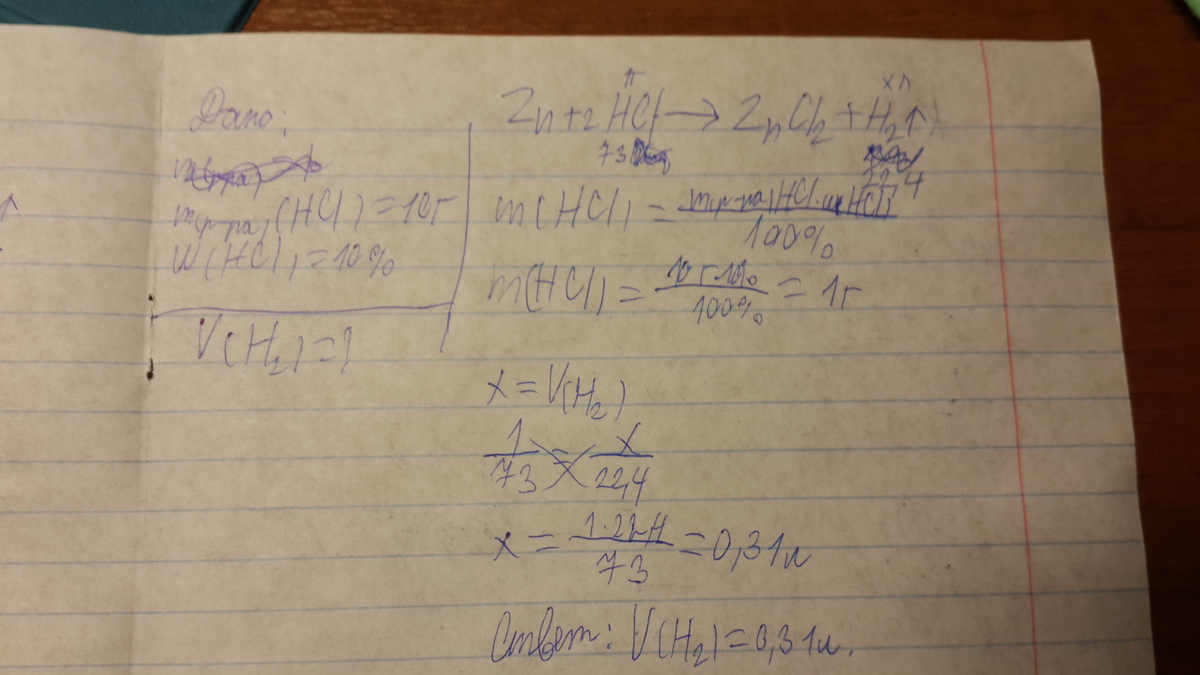 Дано:
m(р-ра)(HCl)=10г
W(HCl)=10%
V(H₂)=?
1г хл
Zn+2HCl→ZnCl₂+H₂↑
73 22,4
m(HCl)=m(р-ра)HCl·w(HCl)/100%
m(HCl)=10г·10%/100%=1г
x=V(H₂)
1/73=x/22,4
x=1·22,4/73=0,31л
Ответ: V(H₂)=0,31л.